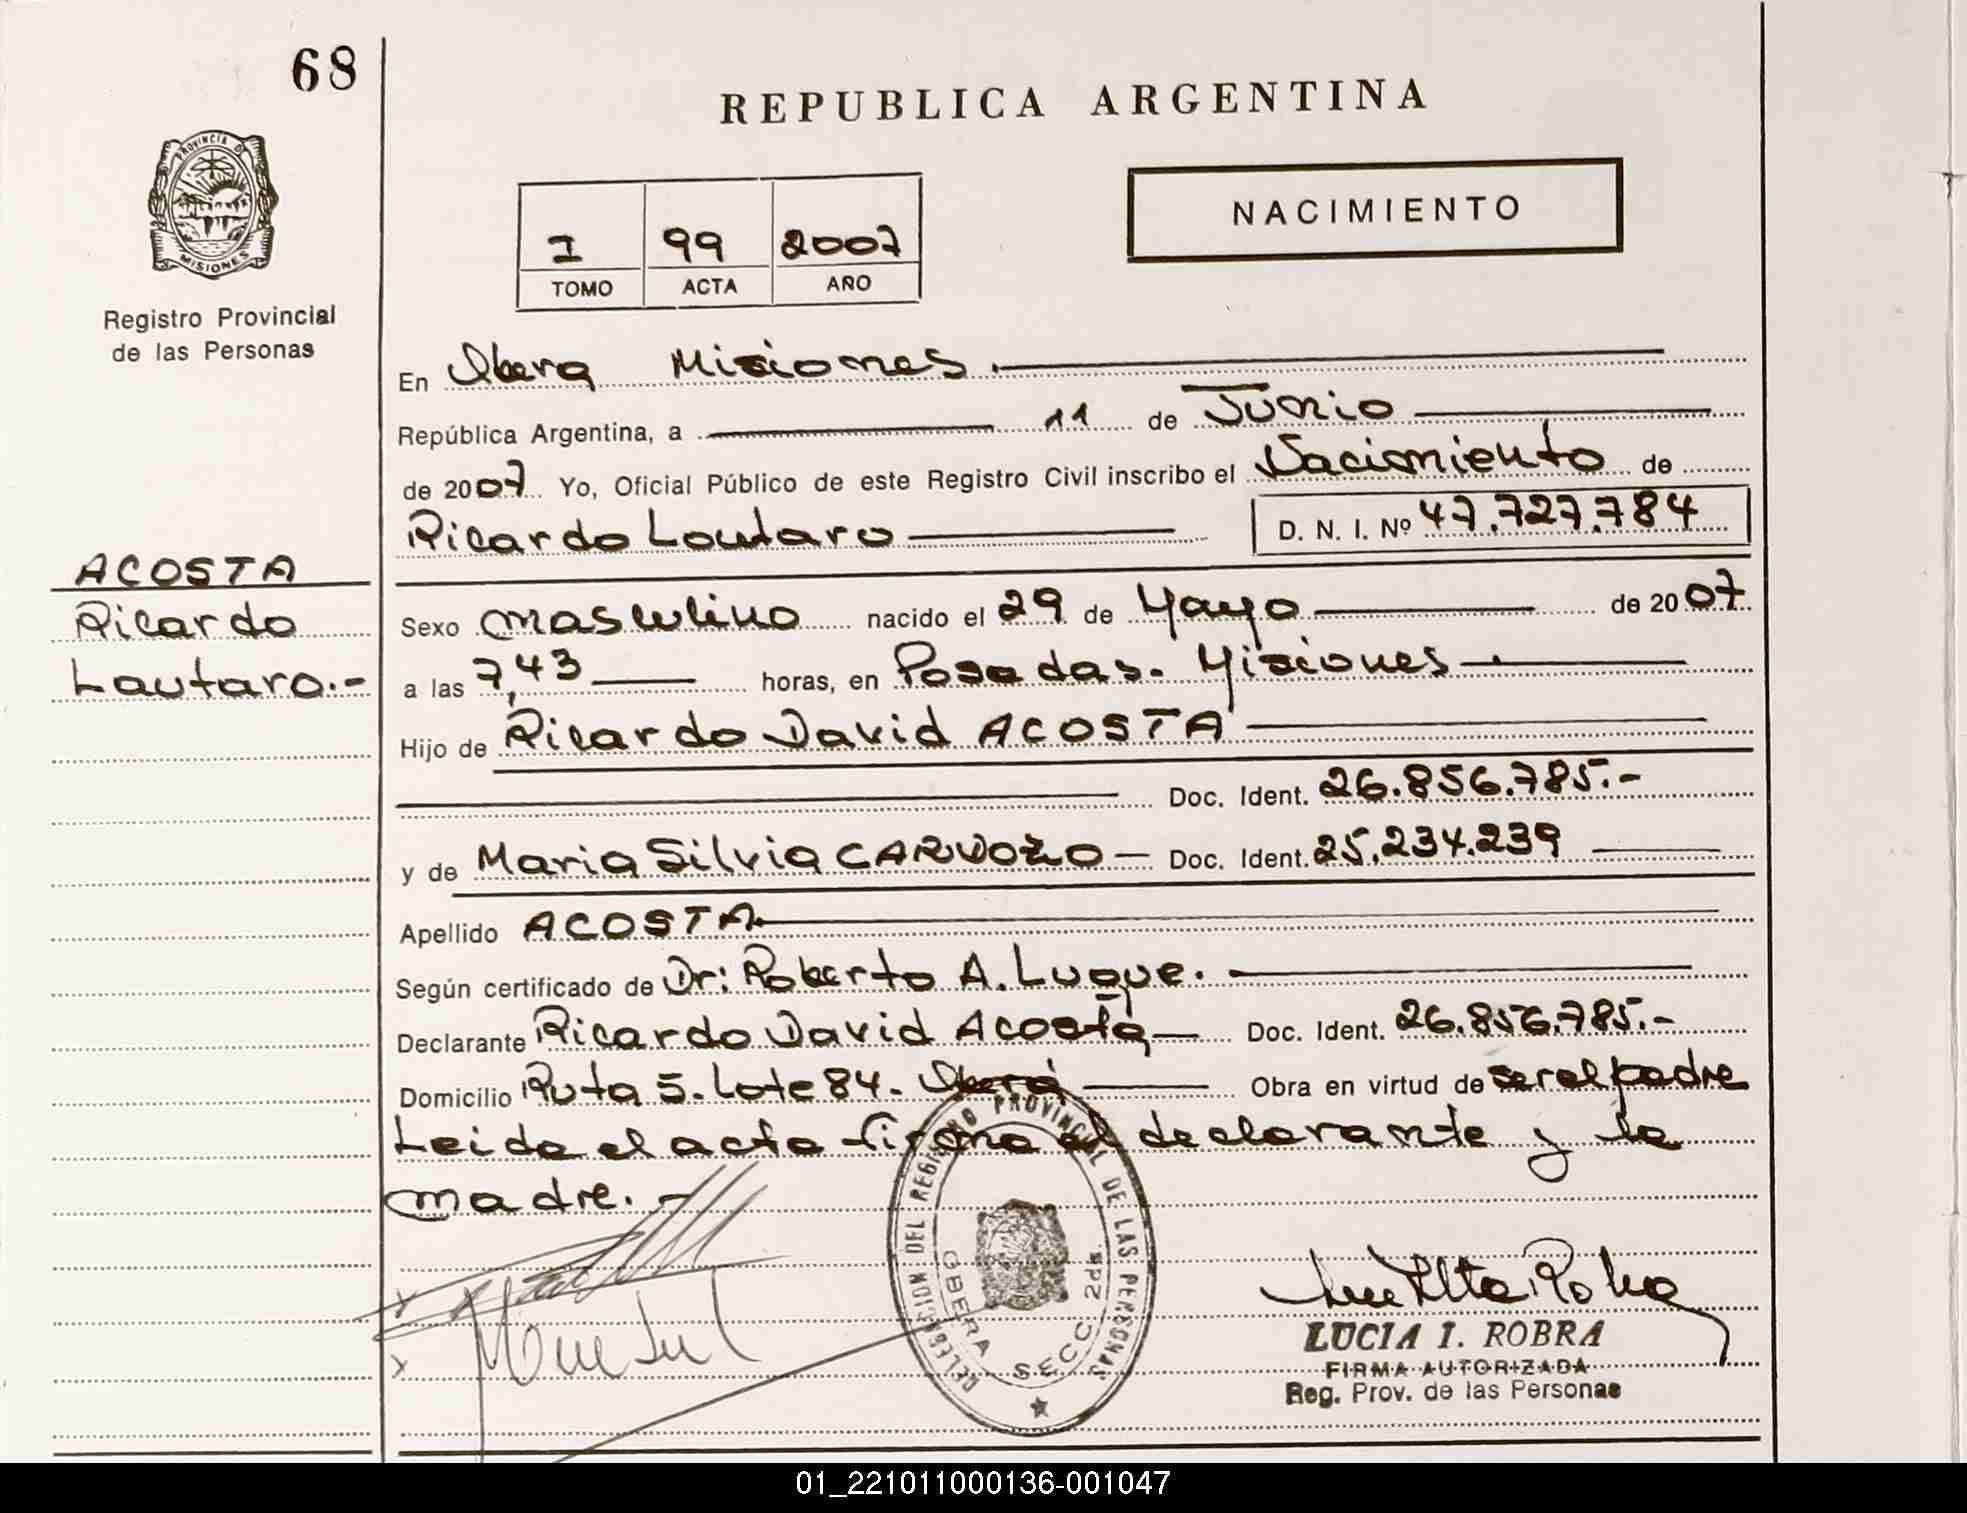 68
REPUBLICA ARGENTINA
PROVINCIA D
MISIONES
Registro Provincial
de las Personas
I 99 2007
TOMO ACTA AÑO
NACIMIENTO
En Obera Misiones.
República Argentina, a 11 de Junio
de 2007 Yo, Oficial Público de este Registro Civil inscribo el Nacimiento de
Ricardo Lautaro D. N. I. Nº 47.727.784
ACOSTA
Ricardo
Lautaro.-
Sexo masculino nacido el 29 de Mayo de 2007
a las 7,43 horas, en Posadas. Misiones
Hijo de Ricardo David ACOSTA
Doc. Ident. 26.856.785.-
y de Maria Silvia CARDOZO Doc. Ident. 25.234.239
Apellido ACOSTA
Según certificado de Dr: Roberto A. Luque.
Declarante Ricardo David Acosta Doc. Ident. 26.856.785.-
Domicilio Ruta 5. Lote 84. Oberá Obra en virtud de ser el padre
Leida el acta firma el declarante y la
madre.-
DELEGACION DEL REGISTRO PROVINCIAL DE LAS PERSONAS
OBERA SECC. 2da.
LUCIA I. ROBRA
FIRMA AUTORIZADA
Reg. Prov. de las Personas
01_221011000136-001047